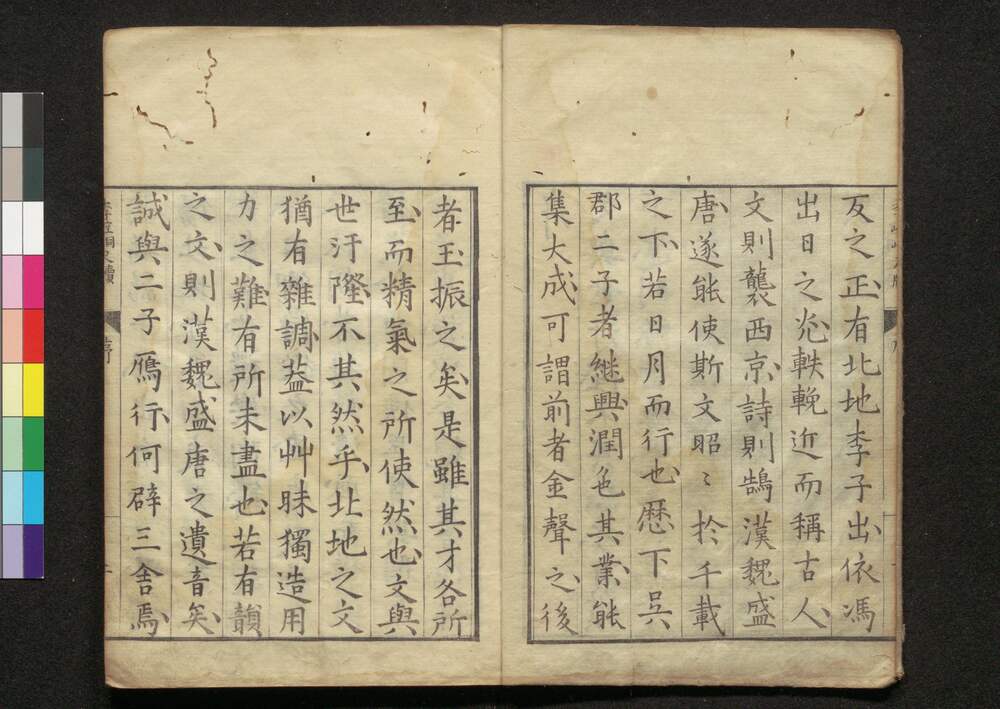 反之正有北地李子出依馮
出日之光軼輓近而稱古人
文則襲西京詩則鵠漢魏盛
唐遂能使斯文昭〻於千載
之下若日月而行也歷下吳
郡二子者継興潤色其業能
集大成可謂前者金聲之後
者玉振之矣是雖其才各所
至而精氣之所使然也文與
世汙隆不其然乎北地之文
猶有雜調蓋以艸昧獨造用
力之難有所未盡也若有韻
之文則漢魏盛唐之遺音矣
誠與二子鴈行何辟三舍焉